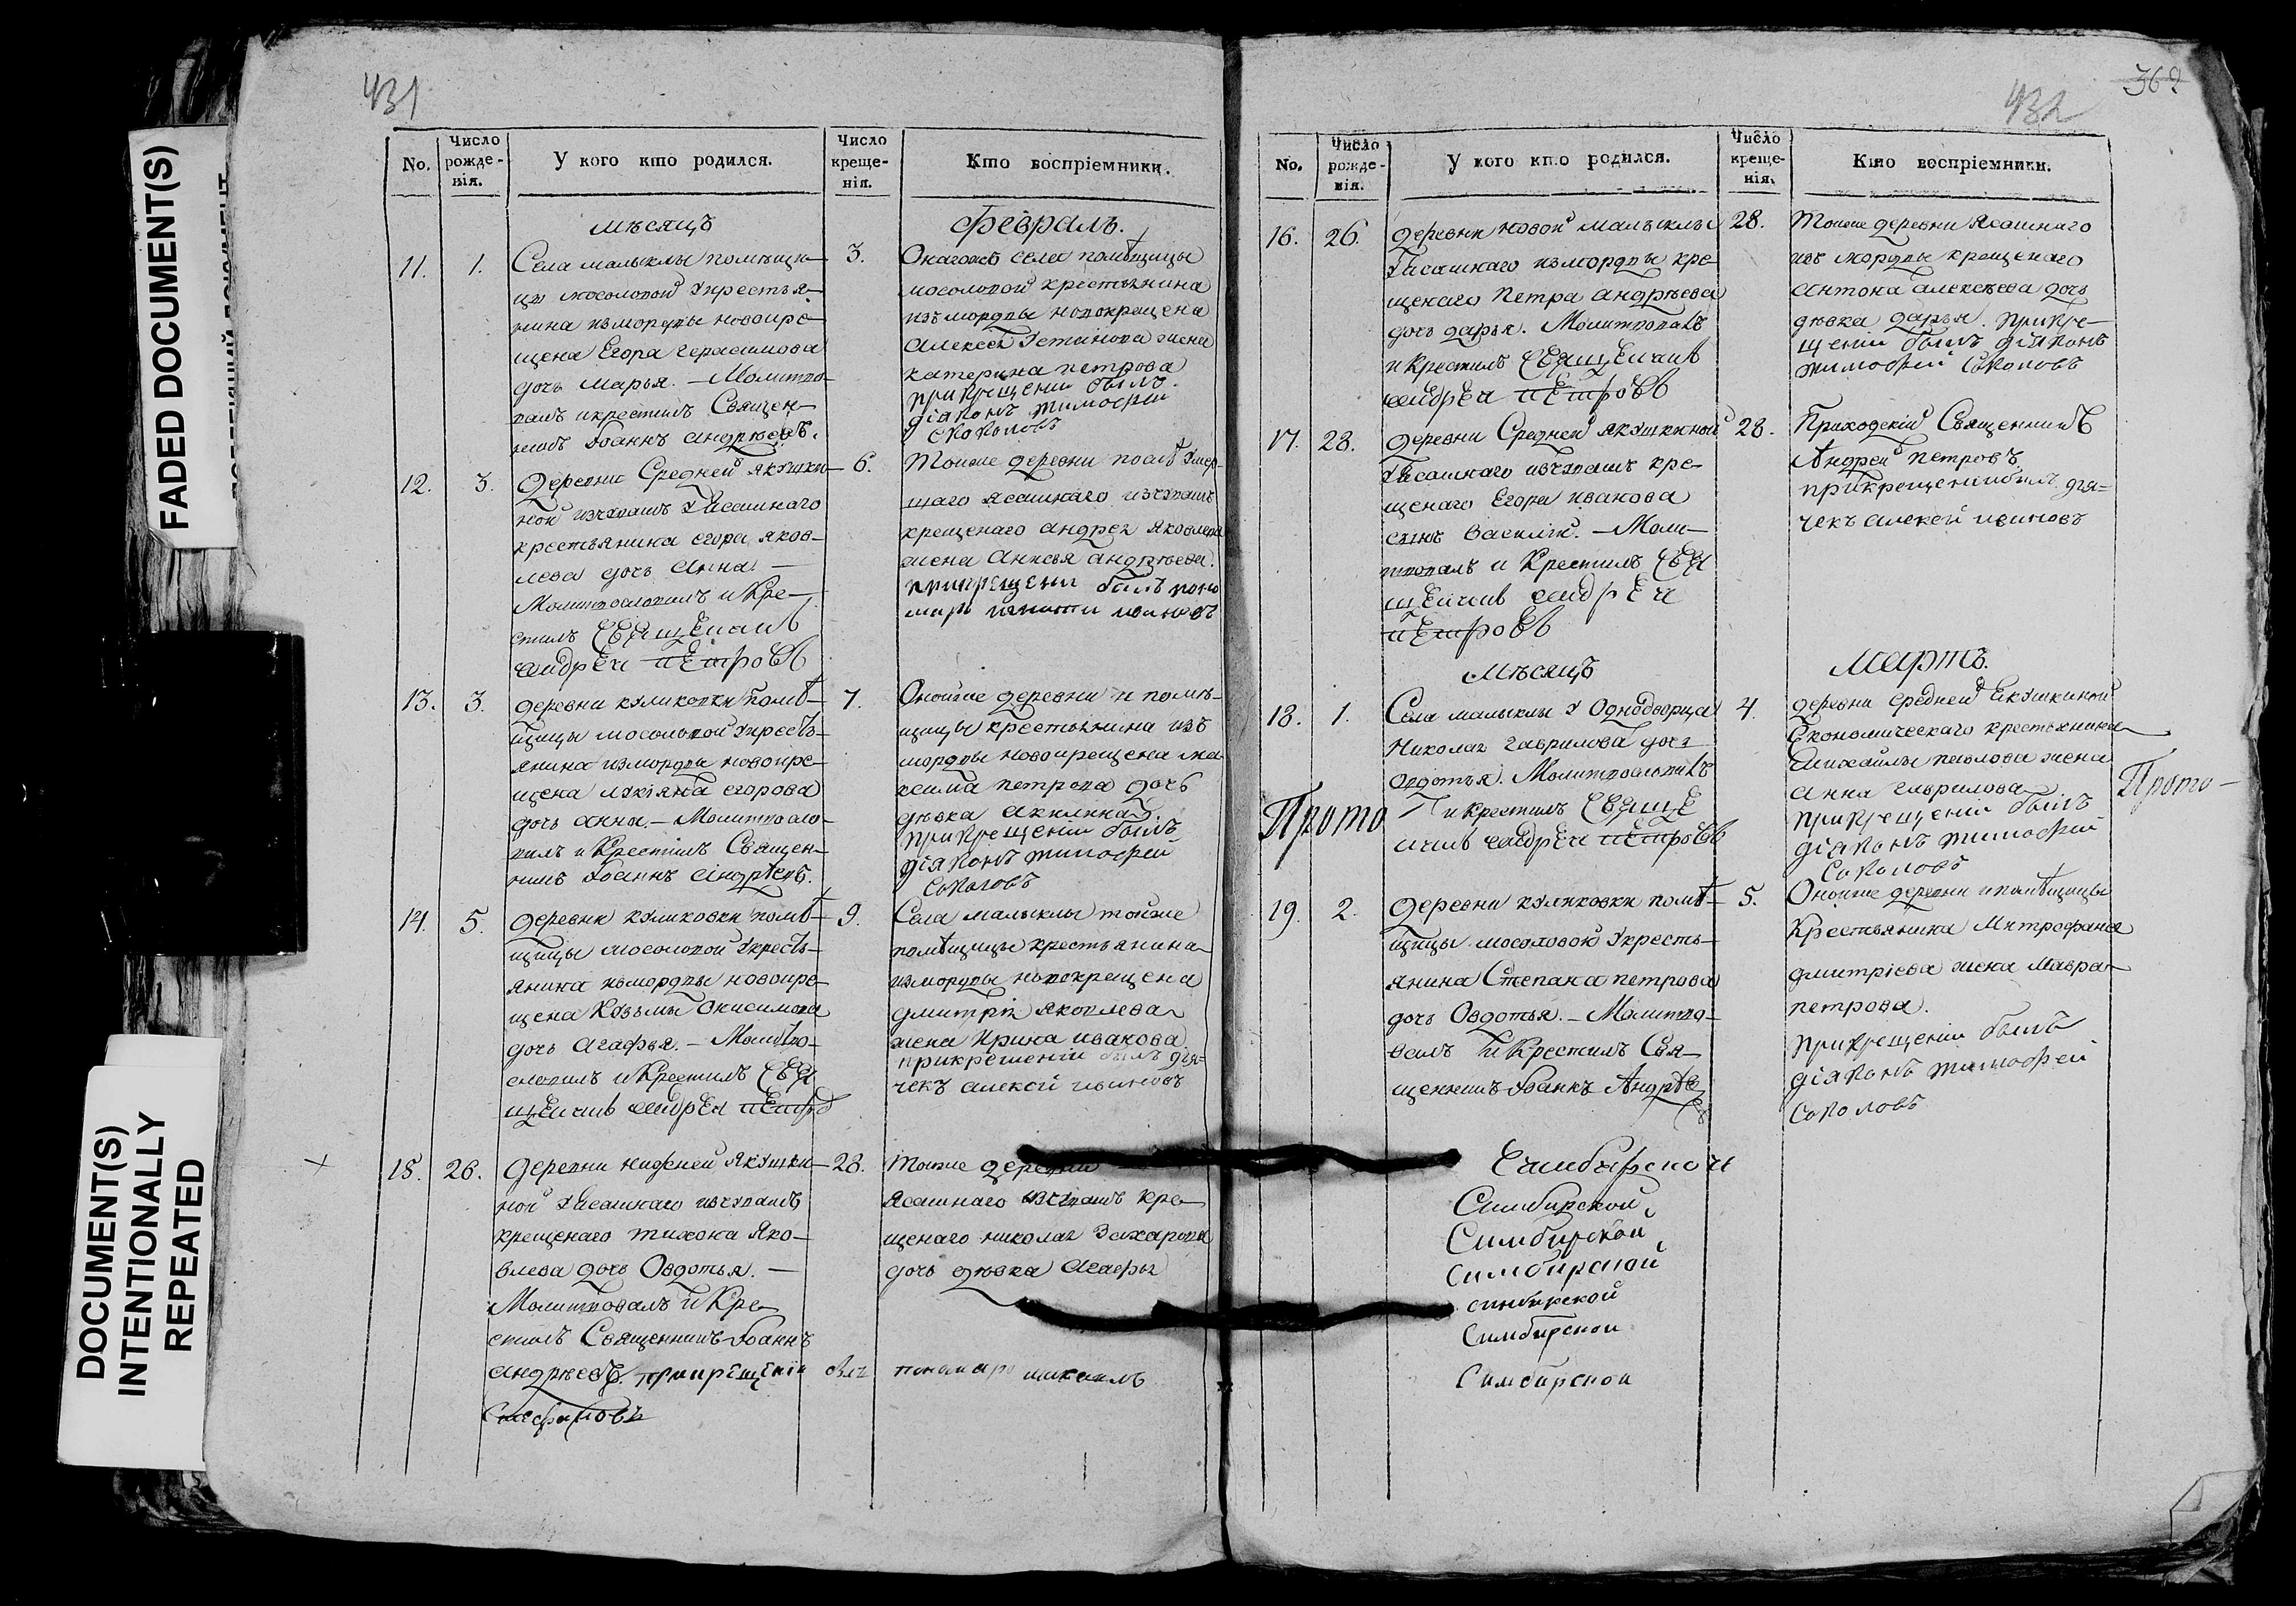 FADED DOCUMENT(S)
DOCUMENT(S)
INTENTIONALLY
REPEATED
431
No.
Число
рожде-
нія.
У кого кто родился.
Число
креще-
нія.
Кто воспріемники.
мѣсяцъ
Февраль.
11.
1.
Села малыклы помѣщи-
цы мосоловой укрестья-
нина измордвы новокре-
щена Егора герасимова
дочь марья. - Молитво-
валъ икрестилъ Священ-
никъ Іоаннъ андрѣевъ.
3.
Оногожъ села помѣщицы
мосоловой крестьянина
изъ мордвы новокрещена
алексея устинова жена
катерина петрова
прикрещени былъ
діаконъ тимофей
Соколовъ
12.
3.
Деревни Средней якушки-
ной изчувашъ уясашнаго
крестьянина егора яков-
лева дочь анна -
Молитвословилъ и Кре-
стилъ Священникъ
андреи петровъ
6.
Тоиже деревни послѣ умер-
шаго ясашнаго изчувашъ
крещенаго андрея яковлева
жена анисья андрѣева.
прикрещени былъ поно
марь
13.
3.
деревни куликовки помѣ-
щицы мосоловой укресть-
янина измордвы новокре-
щена лукіяна егорова
дочь анна. - Молитвосло-
вилъ и Крестилъ Священ-
никъ Іоаннъ андрѣевъ.
7.
Оноиже деревни и помѣ-
щицы крестьянина изъ
мордвы новокрещена ма-
ксима петрова дочь
дѣвка акилина.
прикрещеніи былъ
діаконъ тимофей
Соколовъ
14.
5.
деревни куликовки помѣ-
щицы мосоловой укресть-
янина измордвы новокре-
щена Козьмы Онисимова
дочь агафья. - Молитво-
словилъ и Крестилъ Свя
щенникъ андреи петро
9.
Села малыклы тойже
помѣщицы крестьянина
измордвы новокрещена
дмитрія яковлева
жена Ирина иванова
прикрешеніи былъ дья-
чекъ алексій ивановъ
15.
26.
деревни нижней якушки-
ной уясашнаго изчувашъ
крещенаго тихона яко-
влева дочь Овдотья. -
Молитвовалъ и Кре
стилъ Священникъ Іоаннъ
андрѣевъ. прикрещеніи
Стефановъ
28.
Тоиже деревни
ясашнаго изчувашъ кре
щенаго николая Захарова
дочь дѣвка агафья
былъ пономарь михаилъ
432
362
No.
Число
рожде-
нія.
У кого кто родился.
Число
креще-
нія.
Кто воспріемники.
16.
26.
деревни новой малыклы
уясашнаго измордвы кре
щенаго Петра андрѣева
дочь дарья. Молитвовалъ
и Крестилъ Священникъ
андреи петровъ
28.
Тоиже деревни ясашнаго
изъ мордвы крещенаго
антона алексѣева дочь
дѣвка дарья. прикре-
щеніи былъ діаконъ
тимофей Соколовъ
17.
28.
деревни Средней якушкиной
уясашнаго изчувашъ кре-
щенаго Егора иванова
сынъ василій. - Моли-
твовалъ и Крестилъ Свя
щенникъ андреи
петровъ
28.
Приходскій Священникъ
Андреи петровъ
прикрещеніибылъ дья-
чекъ алексій ивановъ
мѣсяцъ
Мартъ.
18.
1.
Села малыклы у Однодворца
николая гаврилова дочь
овдотья. Молитвословилъ
и Крестилъ Священ
никъ андреи петровъ
Прото
4.
деревни средней якушкиной
Економическаго крестьянина
михайлы павлова жена
анна гаврилова
прикрещеніи былъ
діаконъ тимофей
Соколовъ
Прото-
19.
2.
деревни куликовки помѣ-
щицы мосоловой укресть-
янина Степана петрова
дочь Овдотья. - Молитво-
валъ и Крестилъ Свя-
щенникъ Іоаннъ Андрѣе
5.
Оноиже деревни ипомѣщицы
Крестьянина Митрофана
дмитріева жена Мавра
петрова.
прикрещеніи былъ
діаконъ тимофей
Соколовъ
Симбирской
Симбирской
Симбирской
симбирской
синбирской
Симбирскои
Симбирской